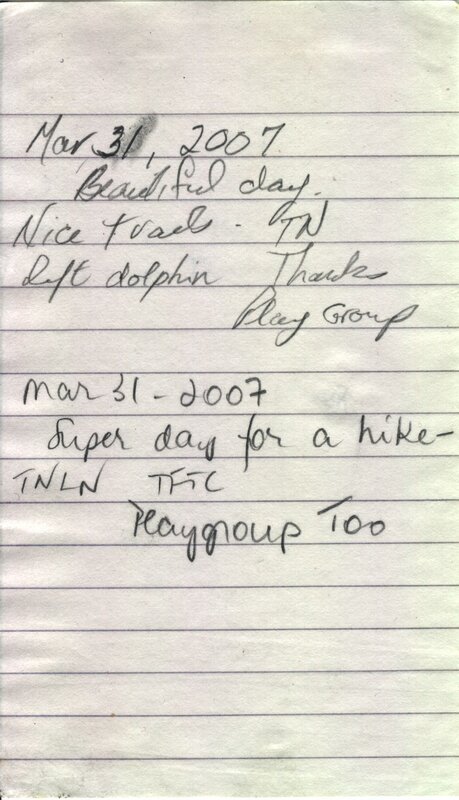 Mar 31, 2007
Beautiful day.
Nice trails - TN
left dolphin Thanks
Play Group
Mar 31 - 2007
Super day for a hike -
TNLN TFTC
Playgroup Too